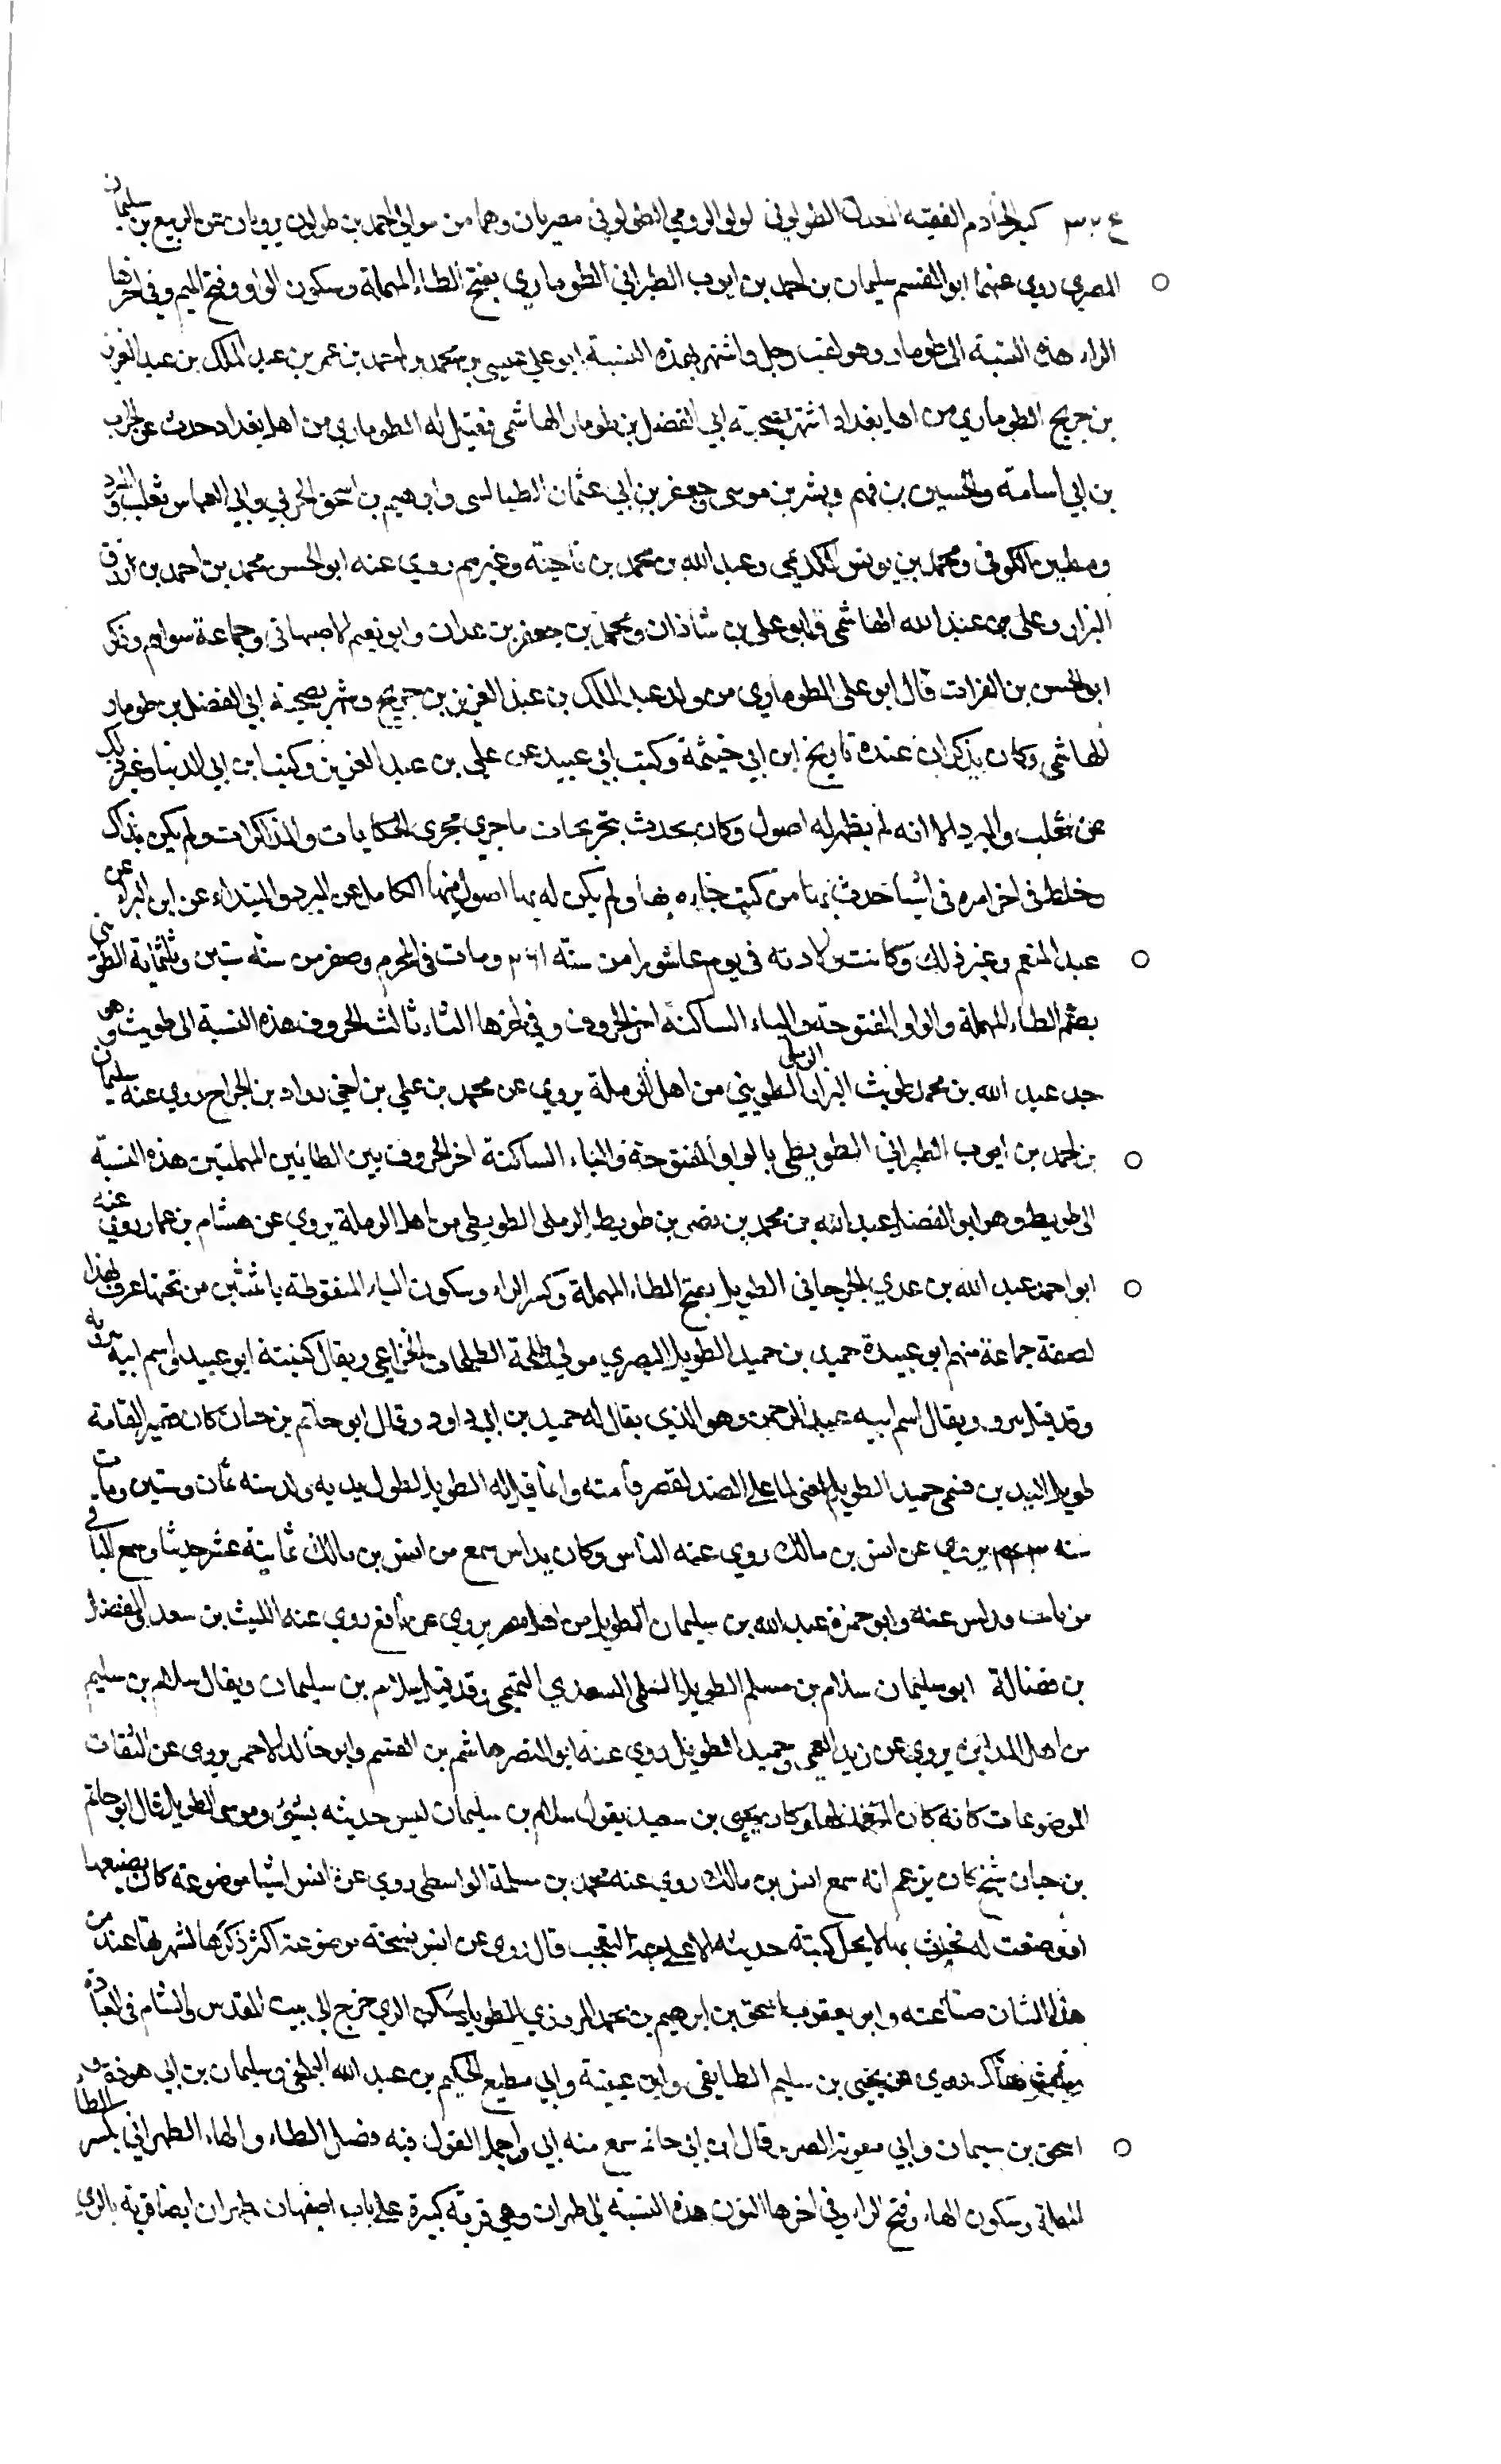 كبير الخادم الفقيه المعدل الطولوني لولو الرومي الطولوني مصريان وهما من موالي احمد بن طولون يرويان عن الربيع بن سليمان
المصري روى عنهما ابو القسم سليمان بن احمد بن ايوب الطبراني الطوماري بفتح الطاء المهملة وسكون الواو وفتح الميم وفي اخرها
الراء هذه النسبة الى طومار وهو لقب رجل واشتهر بهذه النسبة ابو علي عيسى بن محمد بن احمد بن عمر بن عبد الملك بن عبد العزيز
بن جريج الطوماري من اهل بغداد اشتهر بصحبة ابي الفضل بن طومار الهاشمي فقيل له الطوماري من اهل بغداد حدث عن الحرث
بن ابي اسامة والحسين بن فهم وبشر بن موسى وجعفر بن ابي عثمان الطيالسى وابرهيم بن اسحق الحربي وابي العباس ثعلب والمبرد
ومطين الكوفي ومحمد بن يونس الكديمي وعبد الله بن محمد بن ناجية وغيرهم روى عنه ابو الحسن محمد بن احمد بن رزق
البزار وعلى بن عبد الله الهاشمي وابو على بن شاذان ومحمد بن جعفر بن علان وابو نعيم الاصبهاني وجماعة سواهم وذكر
ابو الحسن بن الفرات قال ابو على الطوماري من ولد عبد الملك بن عبد العزيز بن جريج وشهر بصحبة ابي الفضل بن طومار
الهاشمي وكان يذكر ان عنده تاريخ ابن ابي خيثمة وكتب ابي عبيد عن علي بن عبد العزيز وكتب ابن ابي الدنيا وغير ذلك
عن ثعلب والمبرد الا انه لم يظهر له اصول وكان يحدث بتخريجات ما جرى مجرى الحكايات والمذاكرات ولم يكن بذاك
وخلط في اخر امره في اشيا حدث بها من كتب ولم يكن له بها اصول منها الكامل عن المبرد والمبتداء عن ابن البراء عن
عبد المنعم وغير ذلك وكانت ولادته في يوم عاشورا من سنة ومات في المحرم وصفر من سنة ستين وثلثماية الطوثي
بضم الطاء المهملة والواو المفتوحة والياء الساكنة اخر الحروف وفي اخرها الثاء ثالث الحروف هذه النسبة الى طويث وهو
جد عبد الله بن محمد طويث البزار الرملي الطويثي من اهل الرملة يروي عن محمد بن علي بن اخي رواد بن الجراح روى عنه سليمان
بن احمد بن ايوب الطبراني الطويطي بالواو المفتوحة والياء الساكنة اخر الحروف بين الطائين المهملتين هذه النسبة
الى طويط وهو ابو الفضل عبد الله بن محمد بن نصر بن طويط الرملى الطويطي من اهل الرملة يروي عن هشام بن عمار روى عنه
ابو احمد عبد الله بن عدي الجرجاني الطويل بفتح الطاء المهملة وكسر الراء وسكون الياء المنقوطة باثنتين من تحتها عرف بهذا
لصفة جماعة منهم ابو عبيدة حميد بن حميد الطويل البصري مولي طلحة الطلحات الخزاعي ويقال كنيته ابو عبيد واسم ابيه تيرويه
وقد قيل تيرو ويقال اسم ابيه عبد الرحمن وهو الذي يقال له حميد بن ابي داود وقال ابو حاتم بن حبان كان قصير القامة
طويل اليدين فسمى حميد الطويل لمعنى لما على الضد لقصر قامته وانما قيل له الطويل لطول يديه ولد سنة ثمان وستين ومات
سنه يروي عن انس بن مالك روى عنه الناس وكان يدلس سمع من انس بن مالك ثمانية عشر حديثا وسمع الباقي
من ثابت ودلس عنه وابو حمزة عبد الله بن سليمان الطويل من اهل مصر يروي عن نافع روى عنه الليث بن سعد والمفضل
بن فضالة ابو سليمان سلام بن مسلم الطويل السعدي التميمي وقد قيل سلام بن سليمان ويقال سلام بن سليم
من اهل المداين يروي عن زيد العمى وحميد الطويل روى عنه ابو النضر هاشم بن القسم وابو خالد الاحمر يروي عن الثقات
الموضوعات كانه كان المتعمد لها وكان يحيى بن سعيد يقول سلام بن سليمان ليس حديثه بشيئ وموسى الطويل قال ابو حاتم
بن حبان شيخ كان يزعم انه سمع انس بن مالك روى عنه محمد بن مسلمة الواسطى روى عن انس اشيا موضوعة كان يضعها
او وضعت له فحدث بها لا يحل كتبة حديثه الا على جهة التعجب قال روى عن انس نسخة موضوعة اكثر ذكرها لشهرتها عند من
هذا الشان صناعته وابو يعقوب اسحق بن ابرهيم بن محمد المروزي الطويل سكن الري خرج الى بيت المقدس والشام في العبادة
هناك روى عن يحيى بن سليم الطايفي وابن عيينة وابي مطيع الحكيم بن عبد الله البلخي وسليمان بن ابي هوذة و
اسحق بن سليمان وابي معوية الضرير قال ابن ابي حاتم سمع منه ابي واجمل القول فيه فصل الطاء والهاء الطهراني بكسر الطاء
المهملة وسكون الهاء وفتح الراء وفي اخرها النون هذه النسبة الى طهران وهي قرية كبيرة على باب اصفهان طهران ايضا قرية بالري